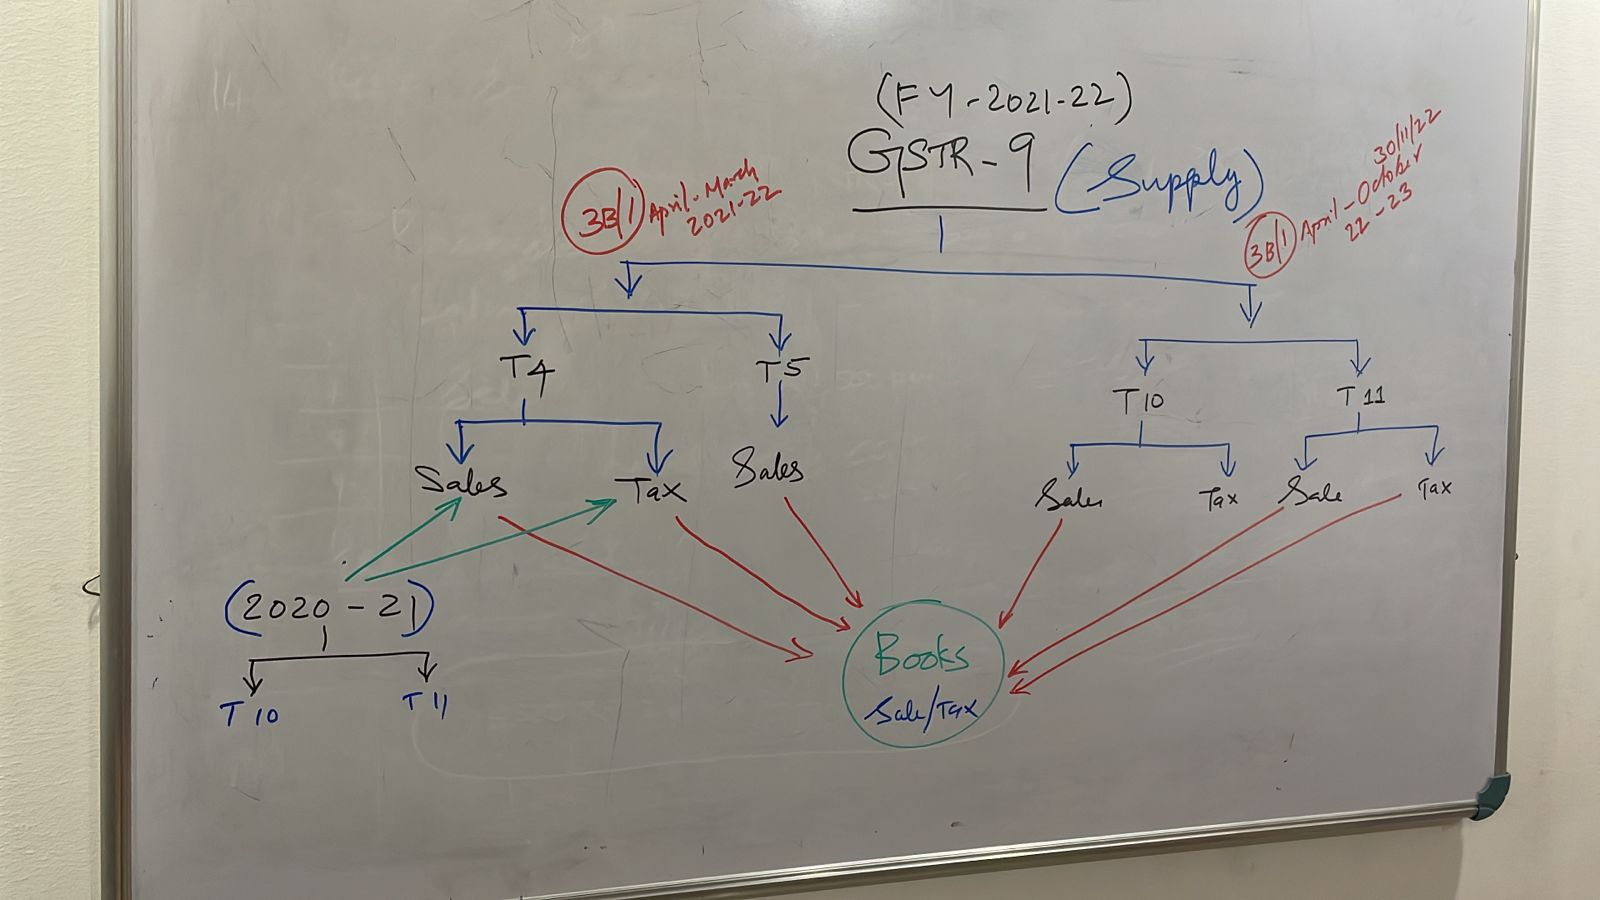 (FY-2021-22)
GSTR-9 (Supply)
3B/1 April-March
2021-22
30/11/22
3B/1 April-October
22-23
T4
T5
T10
T11
Sales
Tax
Sales
Sales
Tax
Sale
Tax
(2020-21)
T10
T11
Books
Sale/Tax